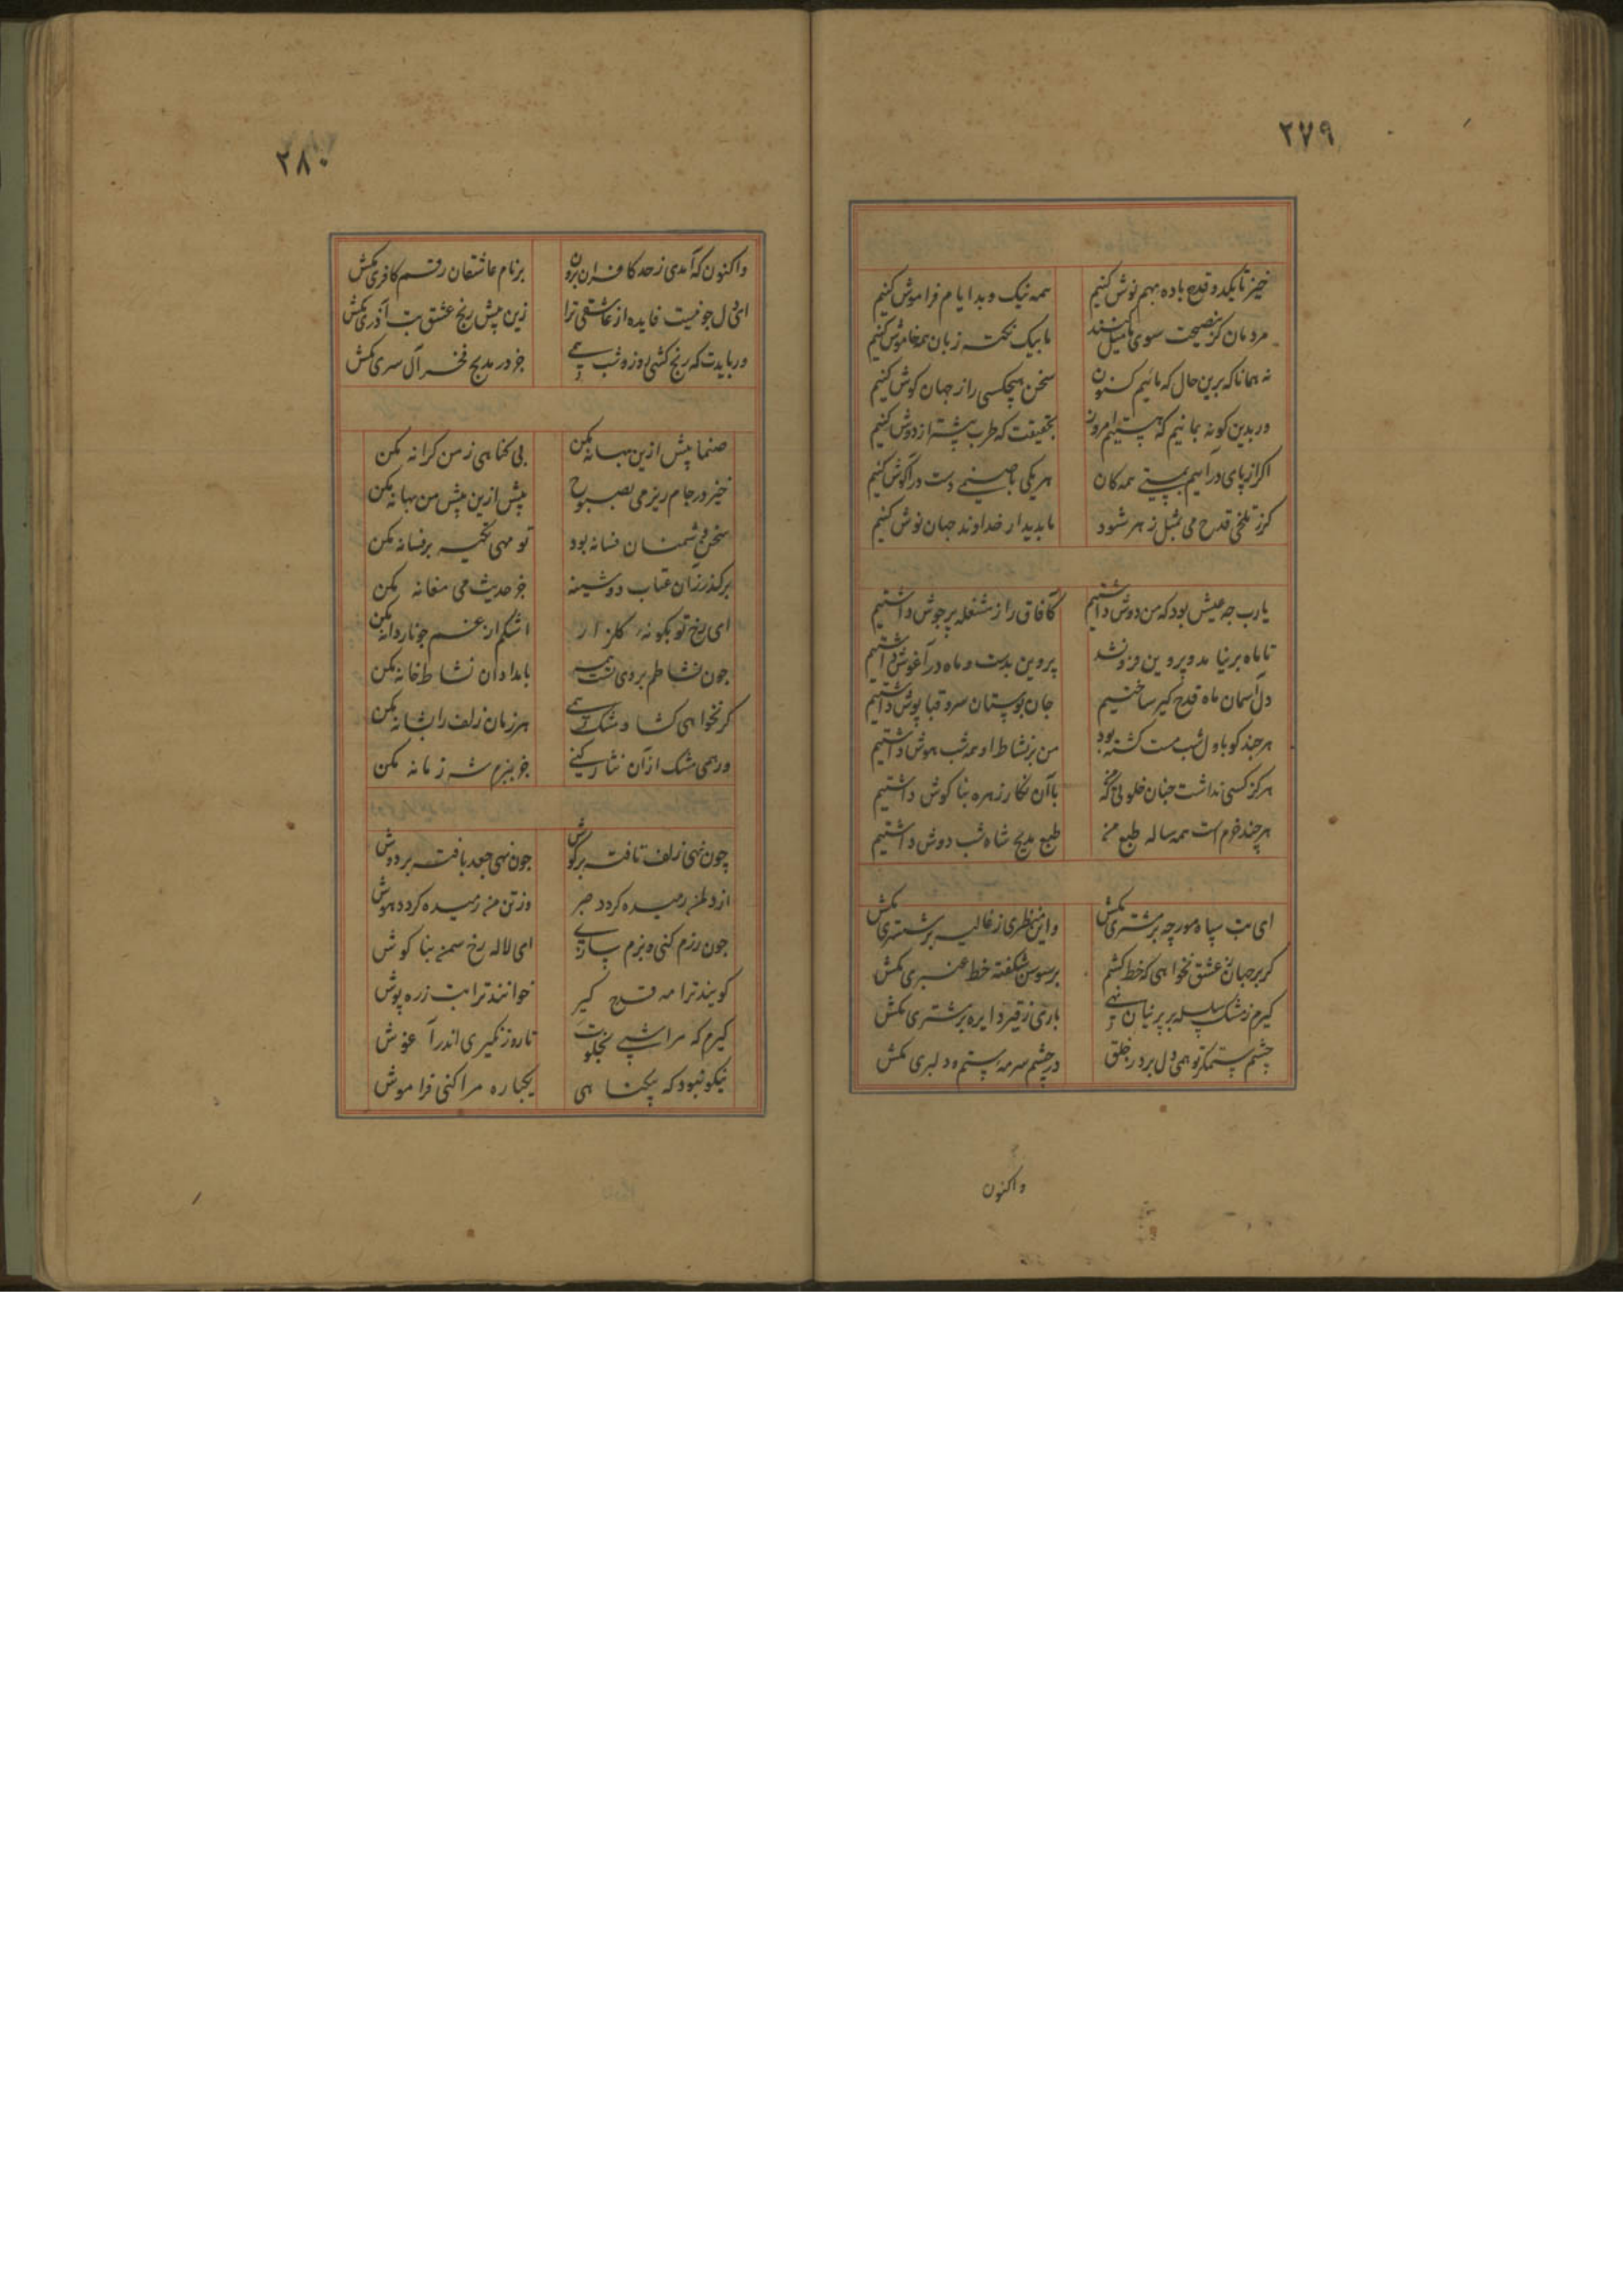 ۲۷۹
خیز تا یکدو قدح باده بهم نوش کنیم همه نیک و بد ایام فراموش کنیم
مردمان کز نصیحت سوی ما میل کنند ما بیک نکته زبان همه خاموش کنیم
نه همانا که برین حال که مائیم کنون سخن هیچکسی را ز جهان کوش کنیم
ور بدین کونه بمانیم که هستیم امروز بحقیقت که طرب بیشتر از دوش کنیم
اکر از پای درآئیم بمستی همه کان هر یکی با صنمی دست در آکوش کنیم
کرز تلخی قدح می بمثل زهر شود با بدیدار خداوند جهان نوش کنیم
یا رب چه عیش بود که من دوش داشتیم کآفاق را ز مشغله پرجوش داشتیم
تا ماه برنیامد و پروین فرونشد پروین بدست و ماه در آغوش داشتیم
دل آسمان ماه قدح کیر ساختیم جان بوستان سرو قباپوش داشتیم
هرچند کو باول شب مست کشته بود من بر نشاط او همه شب هوش داشتیم
هرکز کسی نداشت چنان خلوتی که با آن نکار زهره بناکوش داشتیم
هرچند خرم است همه ساله طبع من طبع مدیح شاه شب دوش داشتیم
ای بت سپاه مورچه بر مشتری مکش واین منظری ز غالیه بر ششتری مکش
کر بر جهان عشق نخواهی که خط کشم بر سوسن شکفته خط عنبری مکش
کیرم ز مشک سلسله بر پرنیان نهی باری ز قیر دایره بر مشتری مکش
چشم ستمکر تو همی دل برد ز خلق در چشم سرمه ستم و دلبری مکش
واکنون
۲۸۰
واکنون که آمدی ز حد کافران برون بر نام عاشقان رقم کافری مکش
ای دل چو نیست فایده از عاشقی ترا زین بیش رنج عشق بت آذری مکش
ور بایدت که رنج کشی روز و شب همی جز در مدیح فخر آل سری مکش
صنما بیش ازین بهانه مکن بی کناهی ز من کرانه مکن
خیز در جام ریز می بصبوح بیش ازین پیش من بهانه مکن
سخن دشمنان فسانه بود تو مهی تکیه بر فسانه مکن
برکذر زان عتاب دوشینه جز حدیث می مغانه مکن
ای رخ تو بکونه کلزار اشکم از غم چو ناردانه مکن
چون نشاطم بردی بامدادان نشاط خانه مکن
کر نخواهی کشاد مشک همی هر زمان زلف را بشانه مکن
ور همی مشک از آن نثار کنی جز ببزم شه زمانه مکن
چون نهی زلف تافته بر کوش چون نهی جعد بافته بر دوش
از دلم رمیده کردد صبر وز تن من رمیده کردد هوش
چون رزم کنی و بزم ای لاله رخ سمن بناکوش
کویند ترا مه قدح کیر خوانند ترا بت زره پوش
کیرم که مرا شبی بخلوت تا روز نکیری اندر آغوش
نیکو نبود که بیکناهی یکباره مرا کنی فراموش